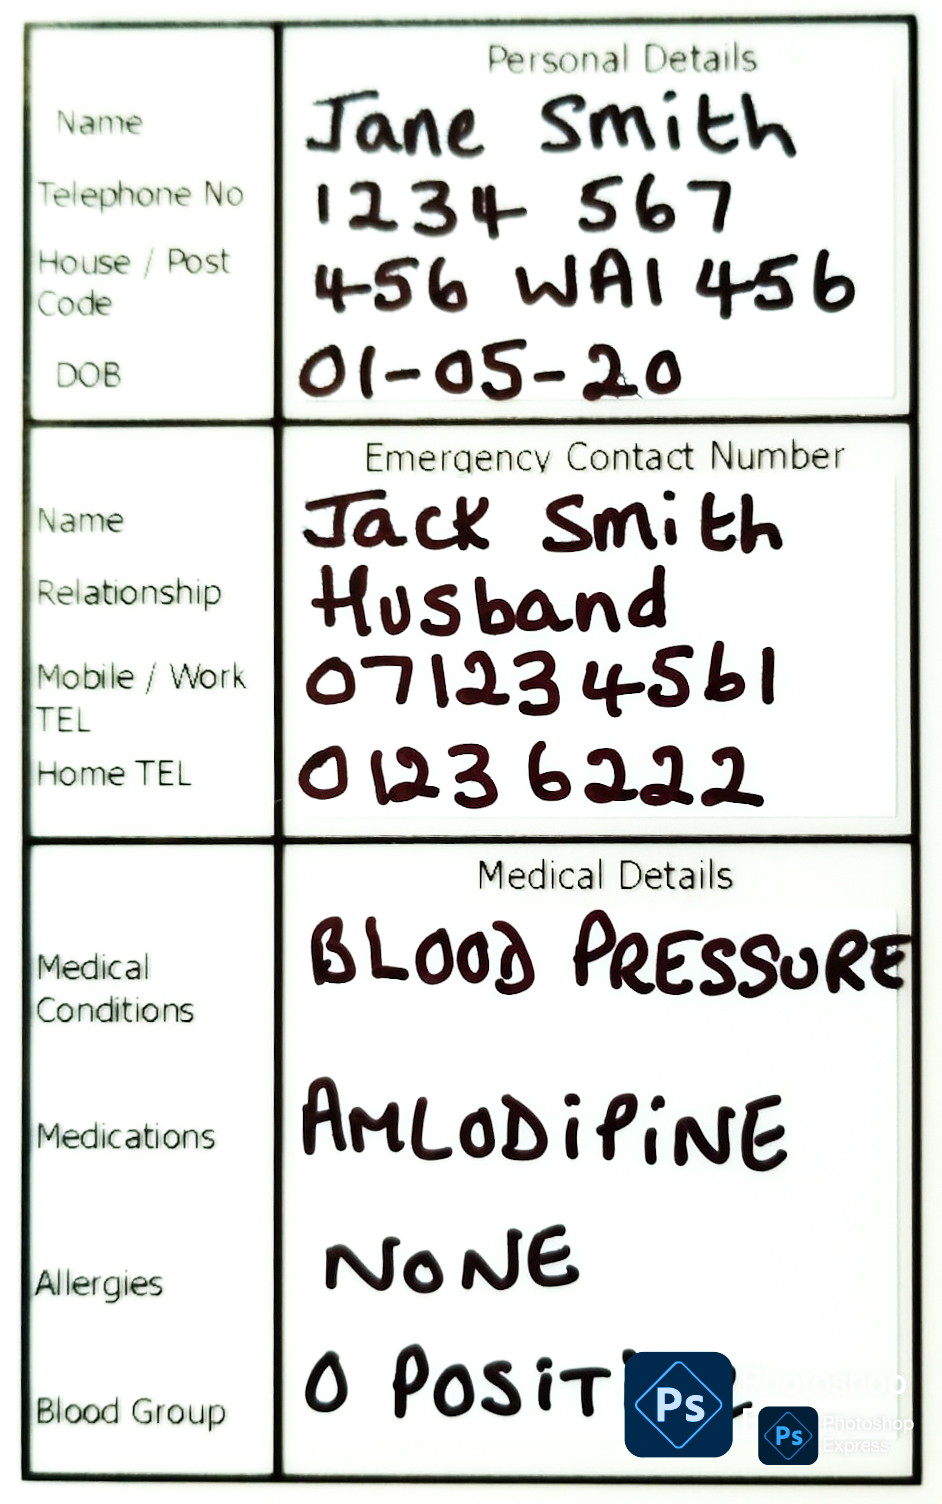 Personal Details
Name Jane Smith
Telephone No 1234 567
House / Post Code 456 WA1 456
DOB 01-05-20
Emergency Contact Number
Name Jack Smith
Relationship Husband
Mobile / Work TEL 071234561
Home TEL 01236222
Medical Details
Medical Conditions BLOOD PRESSURE
Medications AMLODIPINE
Allergies NONE
Blood Group O
Ps Photoshop
Ps Photoshop Express